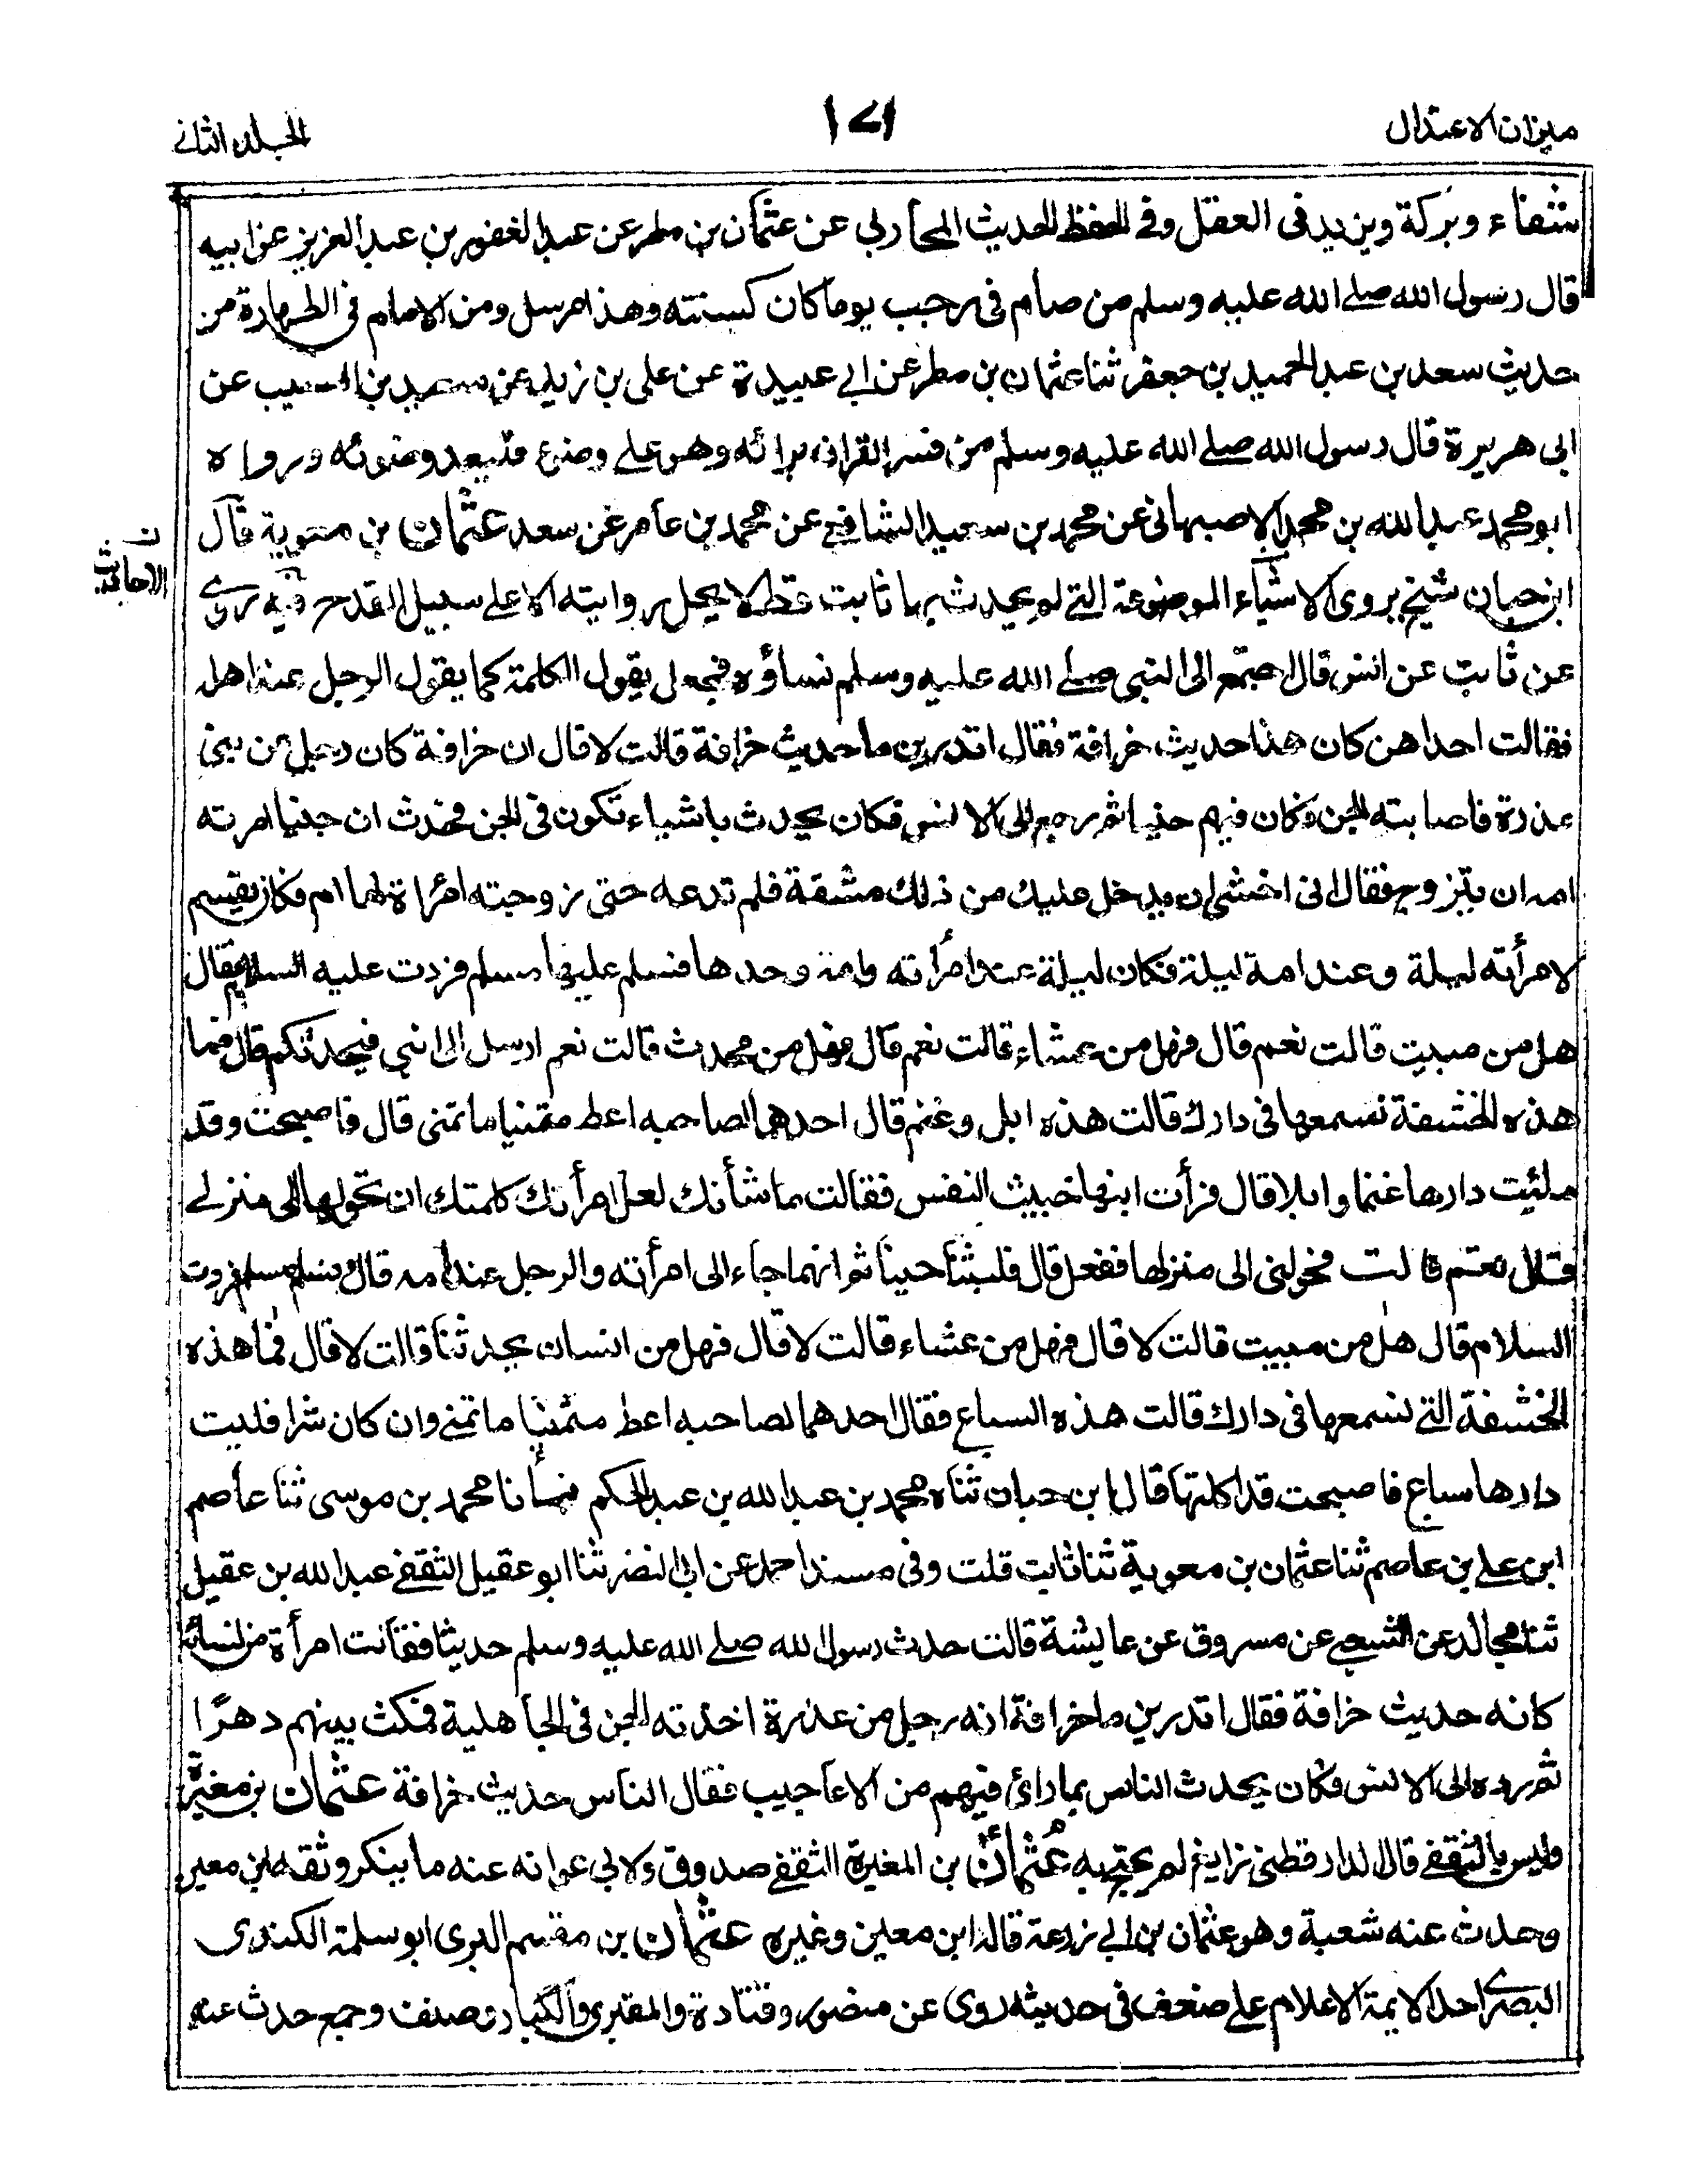 ميزان الاعتدال
المجلد الثاني
شفاء وبركة ويزيد فى العقل وفي الحفظ الحديث المحاربي عن عثمان بن مطر عن عبد الغفور بن عبد العزيز عن ابيه
قال رسول الله صلے الله عليه وسلم من صام فى رجب يوما كان كسنته وهذا مرسل ومن الامام فى الطهارة من
حديث سعد بن عبد الحميد بن جعفر ثنا عثمان بن مطر عن ابي عبيدة عن على بن زيد عن سعيد بن المسيب عن
ابى هريرة قال رسول الله صلے الله عليه وسلم من فسر القران برائه وهو على وضوء فليعد وضوئه ورواه
ابو محمد عبد الله بن محمد الاصبهانى عن محمد بن سعيد الشافعي عن محمد بن عامر عن سعد عثمان بن معوية قال
ن
الاحاديث
ابن حبان شيخ يروى الاشياء الموضوعة التى لم يحدث بها ثابت قط لا يحل روايته الا على سبيل القدح فيه روى
عن ثابت عن انس قال اجتمع الى النبى صلے الله عليه وسلم نساؤه فجعل يقول الكلمة كما يقول الرجل عند اهله
فقالت احداهن كان هذا حديث خرافة فقال اتدرين ما حديث خرافة قالت لا قال ان خرافة كان رجل من بنى
عذرة فاصابته الجن فكان فيهم حينا ثم رجع الى الانس فكان يحدث باشياء تكون فى الجن فحدث ان جنيا امرته
امه ان يتزوج فقال انى اخشى ان يدخل عليك من ذلك مشقة فلم تدعه حتى زوجته امراة لها ام فكان يقسم
لامرأته ليلة وعند امه ليلة فكان ليلة عند امرأته وامه وحدها فسلم عليها مسلم فردت عليه السلام فقال
هل من مبيت قالت نعم قال فهل من عشاء قالت نعم قال فهل من محدث قالت نعم ارسل الى ابنى فيحدثكم قال فما
هذه الخشفة نسمعها فى دارك قالت هذه ابل وغنم قال احدهما لصاحبه اعط متمنيا ما تمنى قال فاصبحت وقد
ملئت دارها غنما وابلا قال فرأت ابنها خبيث النفس فقالت ما شأنك لعل امرأتك كلمتك ان تحولها الى منزلے
فقال نعم قالت فحولنى الى منزلها ففعل قال فلبثنا حينا ثم انهما جاء الى امرأته والرجل عند امه قال فسلم مسلم فردت
السلام قال هل من مبيت قالت لا قال فهل من عشاء قالت لا قال فهل من انسان يحدثنا قالت لا قال فما هذه
الخشفة التي نسمعها فى دارك قالت هذه السباع فقال احدهما لصاحبه اعط متمنيا ما تمنى وان كان شرا فلبت
دارها سباع فاصبحت قد اكلتها قال ابن حبان ثناه محمد بن عبد الله بن عبد الحكم بنسا نا محمد بن موسى ثنا عاصم
ابن علے بن عاصم ثنا عثمان بن معوية ثنا ثابت قلت وفى مسند احمد عن ابى النضر ثنا ابو عقيل الثقفے عبد الله بن عقيل
ثنا مجالد عن الشعبي عن مسروق عن عايشة قالت حدث رسول الله صلے الله عليه وسلم حديثا فقالت امرأة من نسائه
كانه حديث خرافة فقال اتدرين ما خرافة انه رجل من عذرة اخذته الجن فى الجاهلية فمكث بينهم دهرًا
ثم رده الى الانس فكان يحدث الناس بما رائ فيهم من الاعاجيب فقال الناس حديث خرافة عثمان بن مغيرة
وليس بالثقفے قال الدارقطنى زايغ لم يحتج به عثمان بن المغيرة الثقفے صدوق ولابى عوانه عنه ما ينكر وثقه ابن معين
وحدث عنه شعبة وهو عثمان بن ابي زرعة قاله ابن معين وغيره عثمان بن مقسم البرى ابو سلمة الكندى
البصرى احد الايمة الاعلام على ضعف فى حديثه روى عن منصور وقتادة والمقبرى والكبار وصنف وجمع حدث عنه